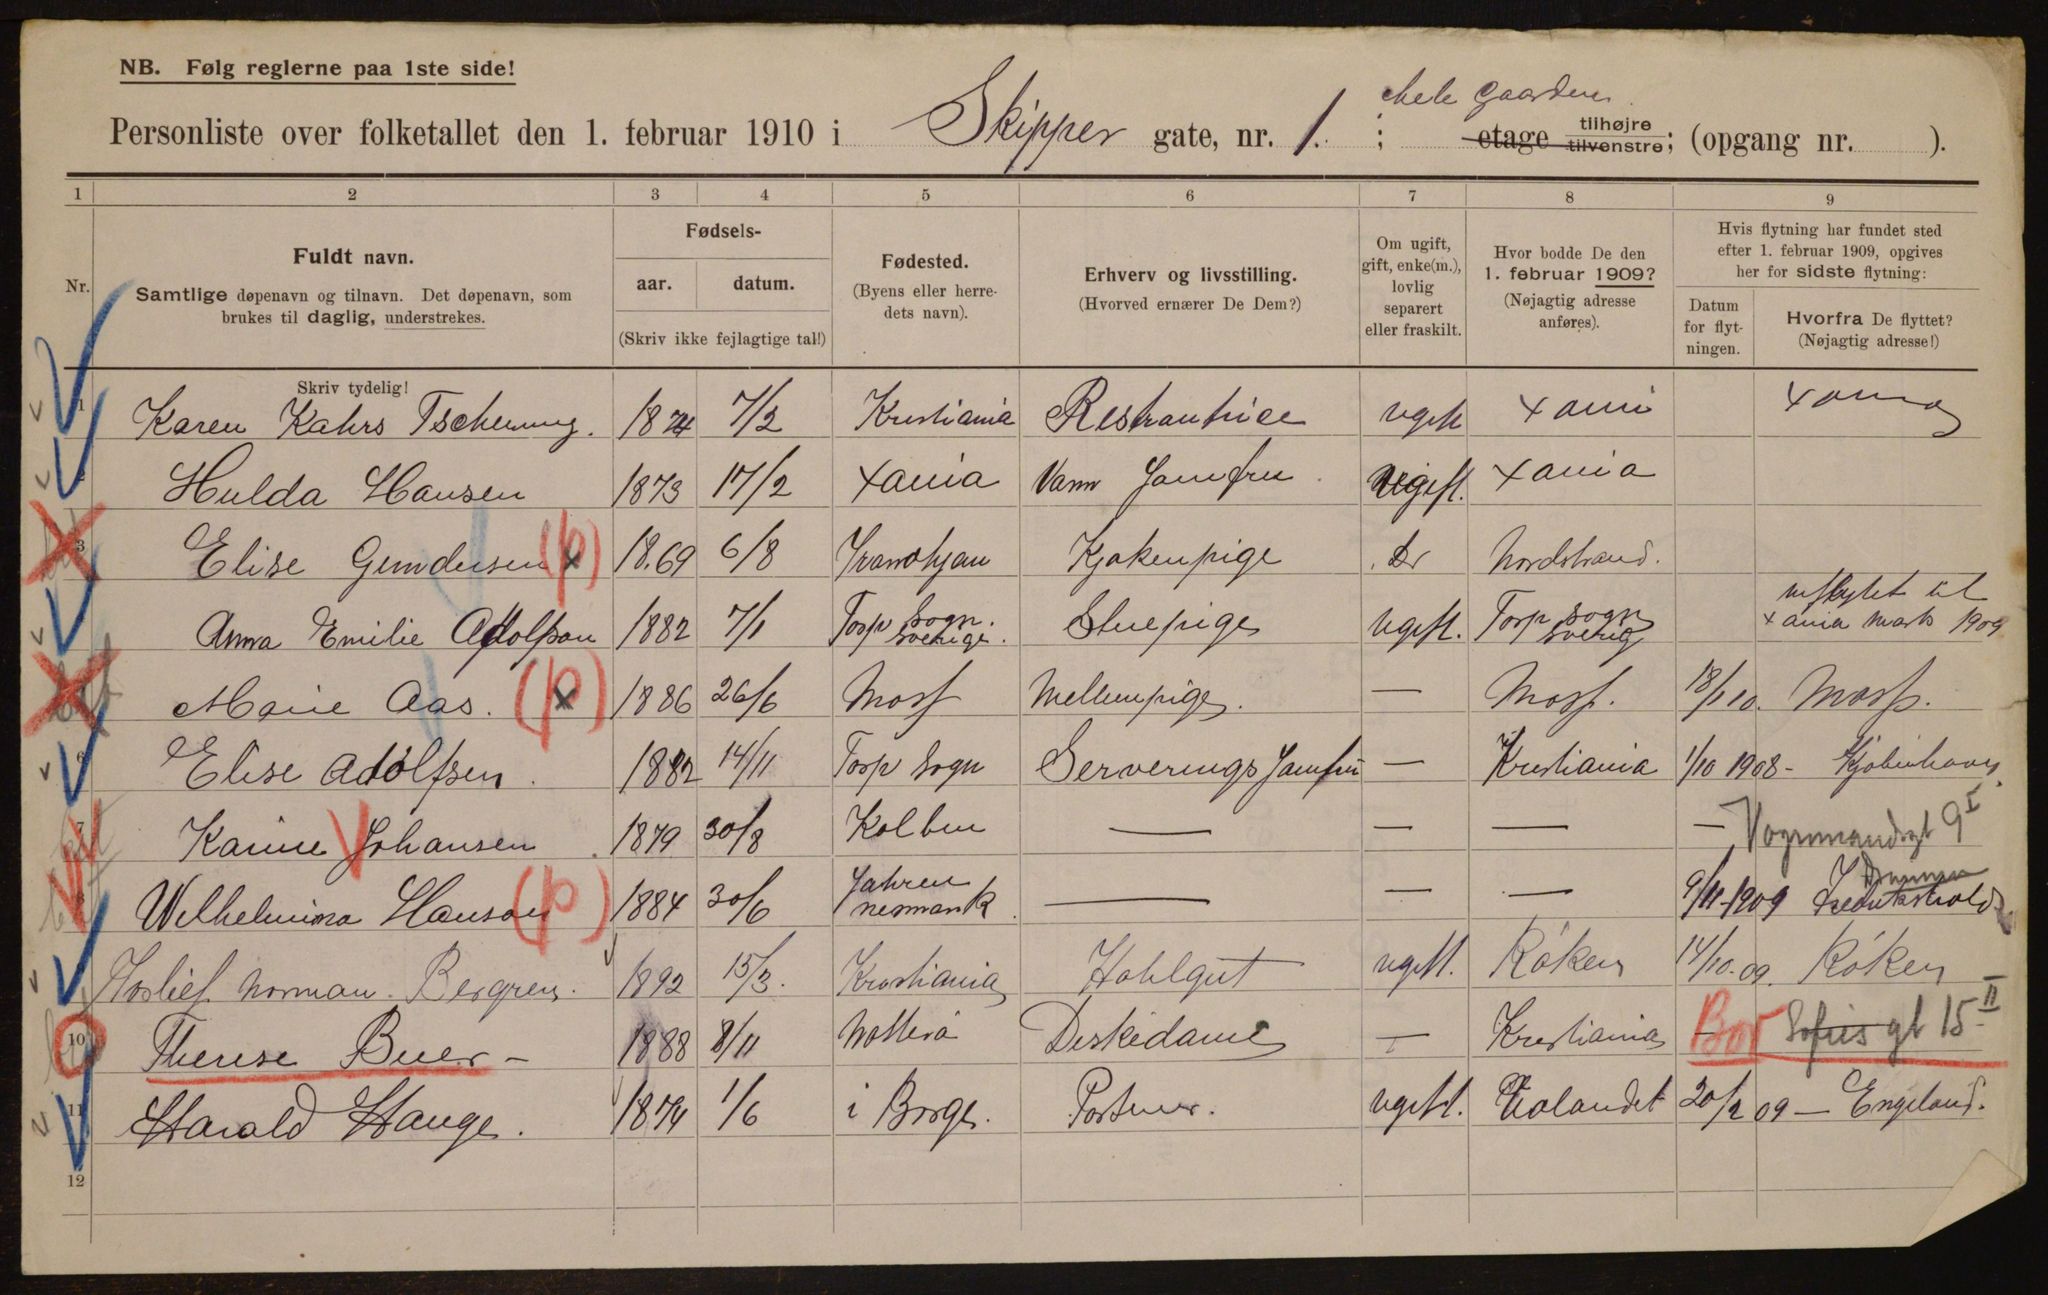 NB. Følg reglerne paa 1ste side!
hele Gaarden
Personliste over folketallet den 1. februar 1910 i Skipper gate, nr. 1. ; etage tilhøjre tilvenstre; (opgang nr. ).
1 2 3 4 5 6 7 8 9
Nr.
Fuldt navn.
Samtlige døpenavn og tilnavn. Det døpenavn, som
brukes til daglig, understrekes.
Skriv tydelig!
Fødsels-
aar. datum.
(Skriv ikke fejlagtige tal!)
Fødested.
(Byens eller herre-
dets navn).
Erhverv og livsstilling.
(Hvorved ernærer De Dem?)
Om ugift,
gift, enke(m.),
lovlig
separert
eller fraskilt.
Hvor bodde De den
1. februar 1909?
(Nøjagtig adresse
anføres).
Hvis flytning har fundet sted
efter 1. februar 1909, opgives
her for sidste flytning:
Datum
for flyt-
ningen.
Hvorfra De flyttet?
(Nøjagtig adresse!)
1 Karen Kahrs Tscherning. 1874 7/2 Kristiania Restrautrice ugift Xania
2 Hulda Hansen 1873 17/2 Xania Vann Jomfru. Ugift. Xania
3 Elise Gundersen (p) x 18.69 6/8 Kjøkenpige Do Nordstrand.
Anna Emilie Adolfson 1882 7/1 Torp Sogn. Sverige. Stuepige ugift. Torp Sogn Sverig inflytet til Xania Marts 1909
Marie Aas. (p) x 1886 26/6 Moss Mellempige. — Moss. 18/1 10. Moss.
6 Elise Adolfsen. 1882 14/11 Torp Sogn Serverings Jomfru — Kristiania 1/10 1908 - Kjøbenhavn.
7 Karine Johansen 1879 30/8 Kolbu — — — — Vognmandsgt 9 I
8 Wilhelmina Hanson (p) 1884 30/6 — — — 9/11-1909 Drammen
Norman Bergren. 1892 15/3. Kristiania ugift. Röken 14/10.09. Röken
10 Therese Buer - 1888 8/11 Nötterö Diskedame — Kristiania Bor Sofies gt 15 II
11 Harald Hauge. 1874 1/6 i Borge. Portner. ugift. Udlandet 20/2 09 — Engeland.
12